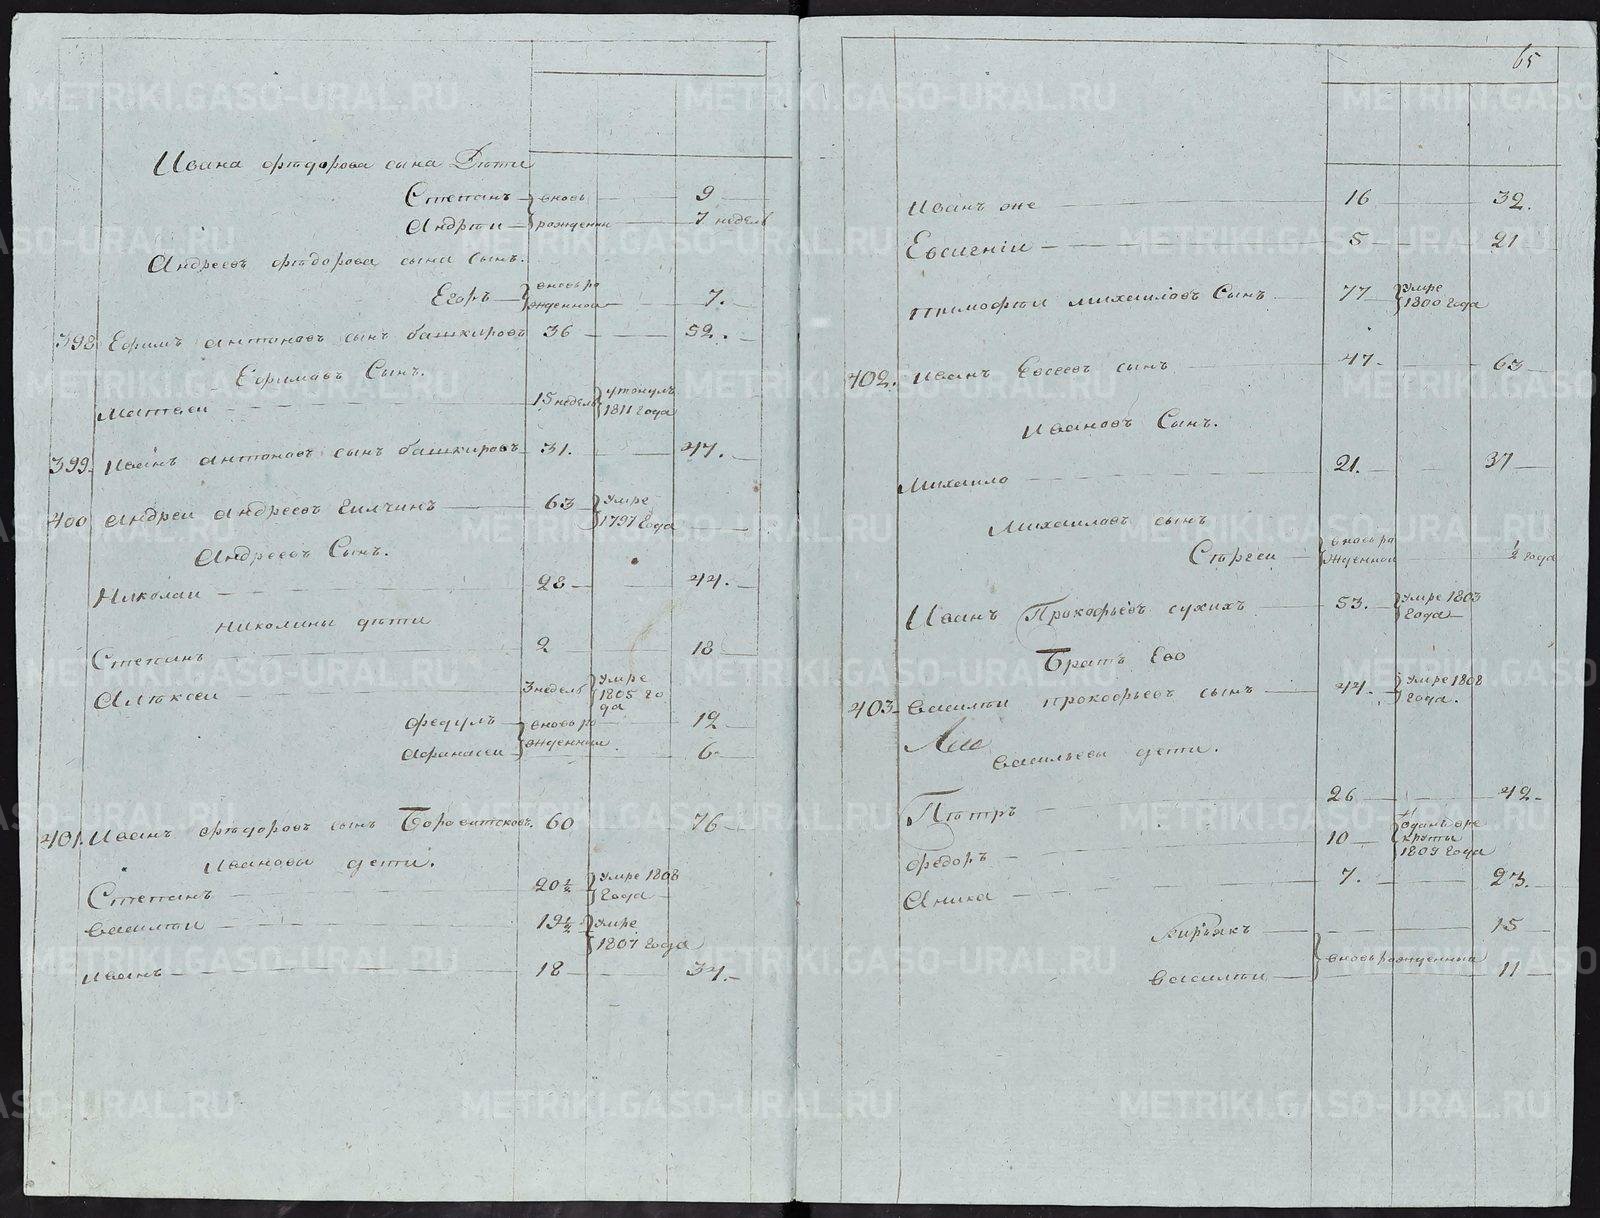 Ивана фѣдорова сына Дѣти
Степанъ вновь 9
Андрѣи рожденни 7 недель
Андреевъ фѣдорова сына Сынъ.
Егоръ вновь ро
жденной 7.
398 Ефимъ антоновъ сынъ башкировъ 36 52.
Ефимовъ Сынъ.
Матвеи 15 недель утонулъ
1811 года
399. Иванъ антоновъ сынъ башкировъ 31. 47.
400 андреи андреевъ 63 умре
1797 года
Андреевъ Сынъ.
Николаи 28 44.
николины дѣти
Степанъ 2 18
Алѣксеи 3 недель умре
1805 го
да
федулъ вновь ро 12
Афанасеи жденнии 6
401. Иванъ фѣдоровъ сынъ 60 76
Ивановы дети.
Степанъ 20 1/2 умре 1808
года
василѣи 19 1/2 умре
1807 года
иванъ 18 34.
65
Иванъ же 16 32.
Евсигнiи 5 21
тимофѣи михаиловъ Сынъ 77 умре
1800 года
402. иванъ Евсеевъ сынъ 47. 63
ивановъ Сынъ.
Михаило 21. 37
Михаиловъ сынъ
Сѣргеи вновь ро
жденнои 1/2 года
Иванъ Прокофьевъ сухихъ 53. умре 1803
года
Братъ Ево
403 василѣи прокофьевъ сынъ 44. умре 1808
года.
васильевы дети.
Пѣтръ 26 42.
федоръ 10 отданъ вре
круты
1809 года
Аника 7. 23.
Кирьякъ 15
вновь рожденнии
василѣи 11
METRIKI.GASO-URAL.RU